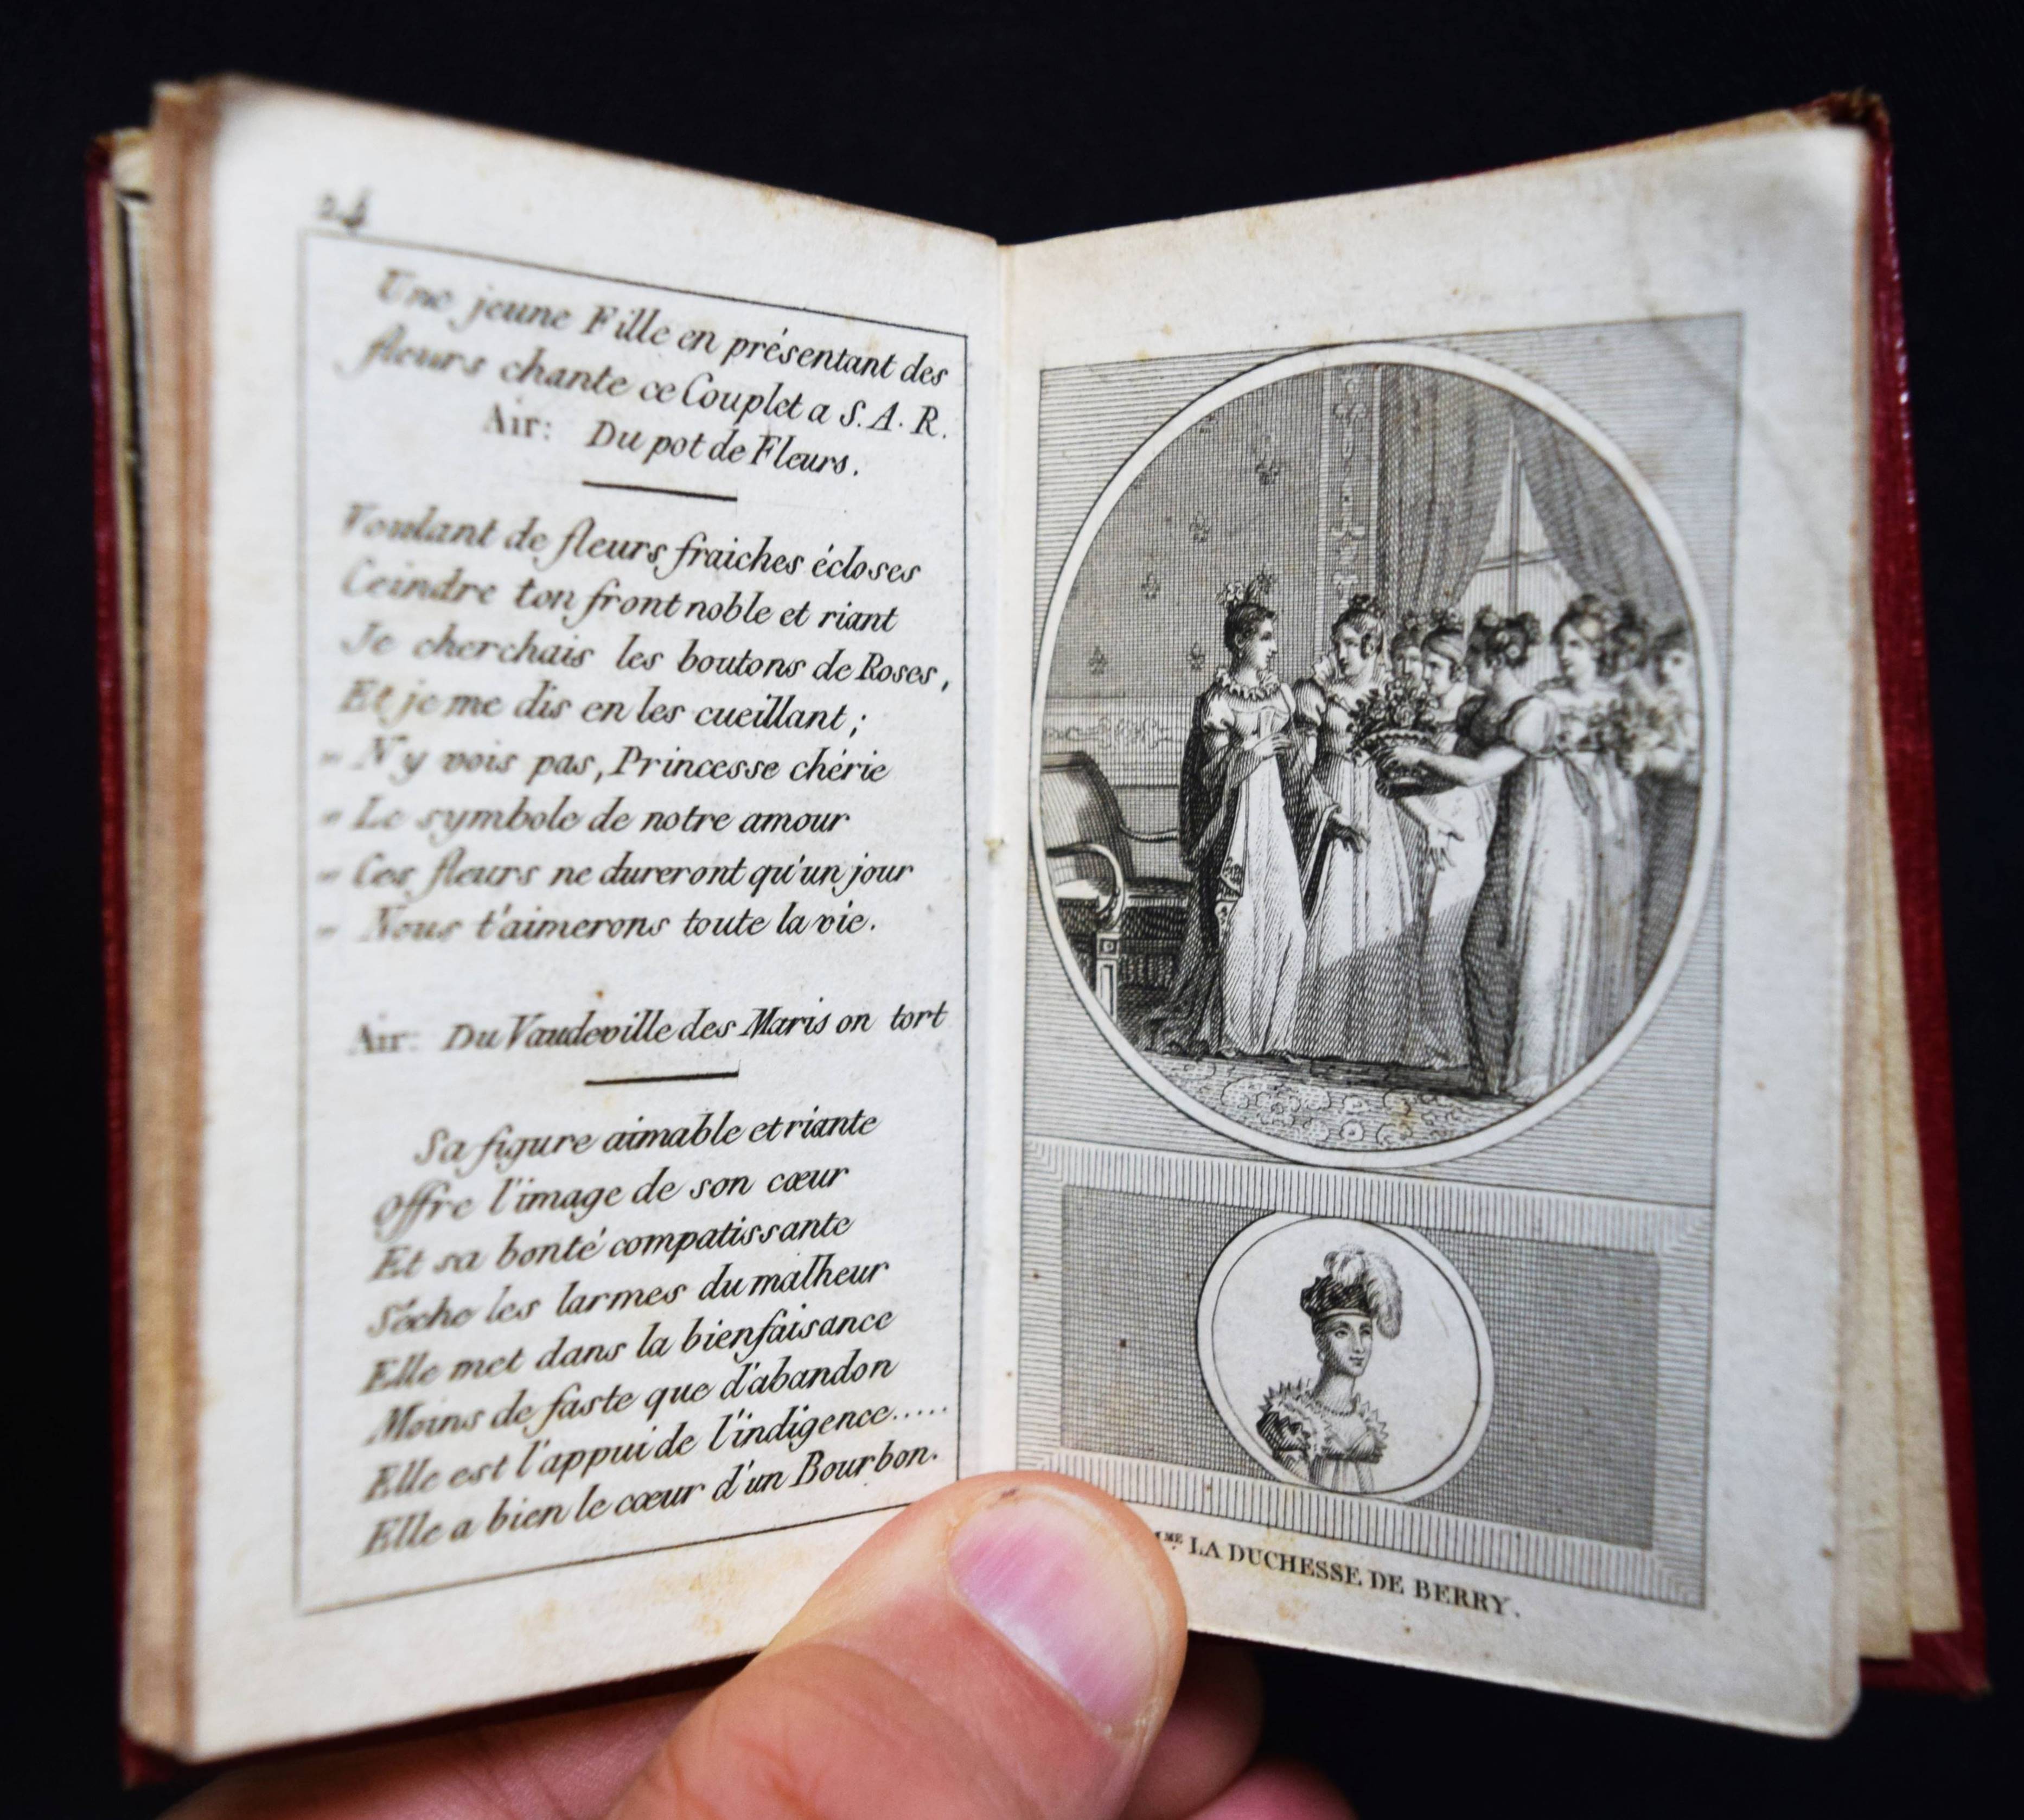 24
Une jeune Fille en présentant des
fleurs chante ce Couplet a S. A. R.
Air: Du pot de Fleurs.
Voulant de fleurs fraiches écloses
Ceindre ton front noble et riant
Je cherchais les boutons de Roses,
Et je me dis en les cueillant ;
" N'y vois pas, Princesse chérie
" Le symbole de notre amour
" Ces fleurs ne dureront qu'un jour
" Nous t'aimerons toute la vie.
Air: Du Vaudeville des Maris on tort
Sa figure aimable et riante
Offre l'image de son cœur
Et sa bonté compatissante
Sèche les larmes du malheur
Elle met dans la bienfaisance
Moins de faste que d'abandon
Elle est l'appui de l'indigence.....
Elle a bien le cœur d'un Bourbon.
LA DUCHESSE DE BERRY.